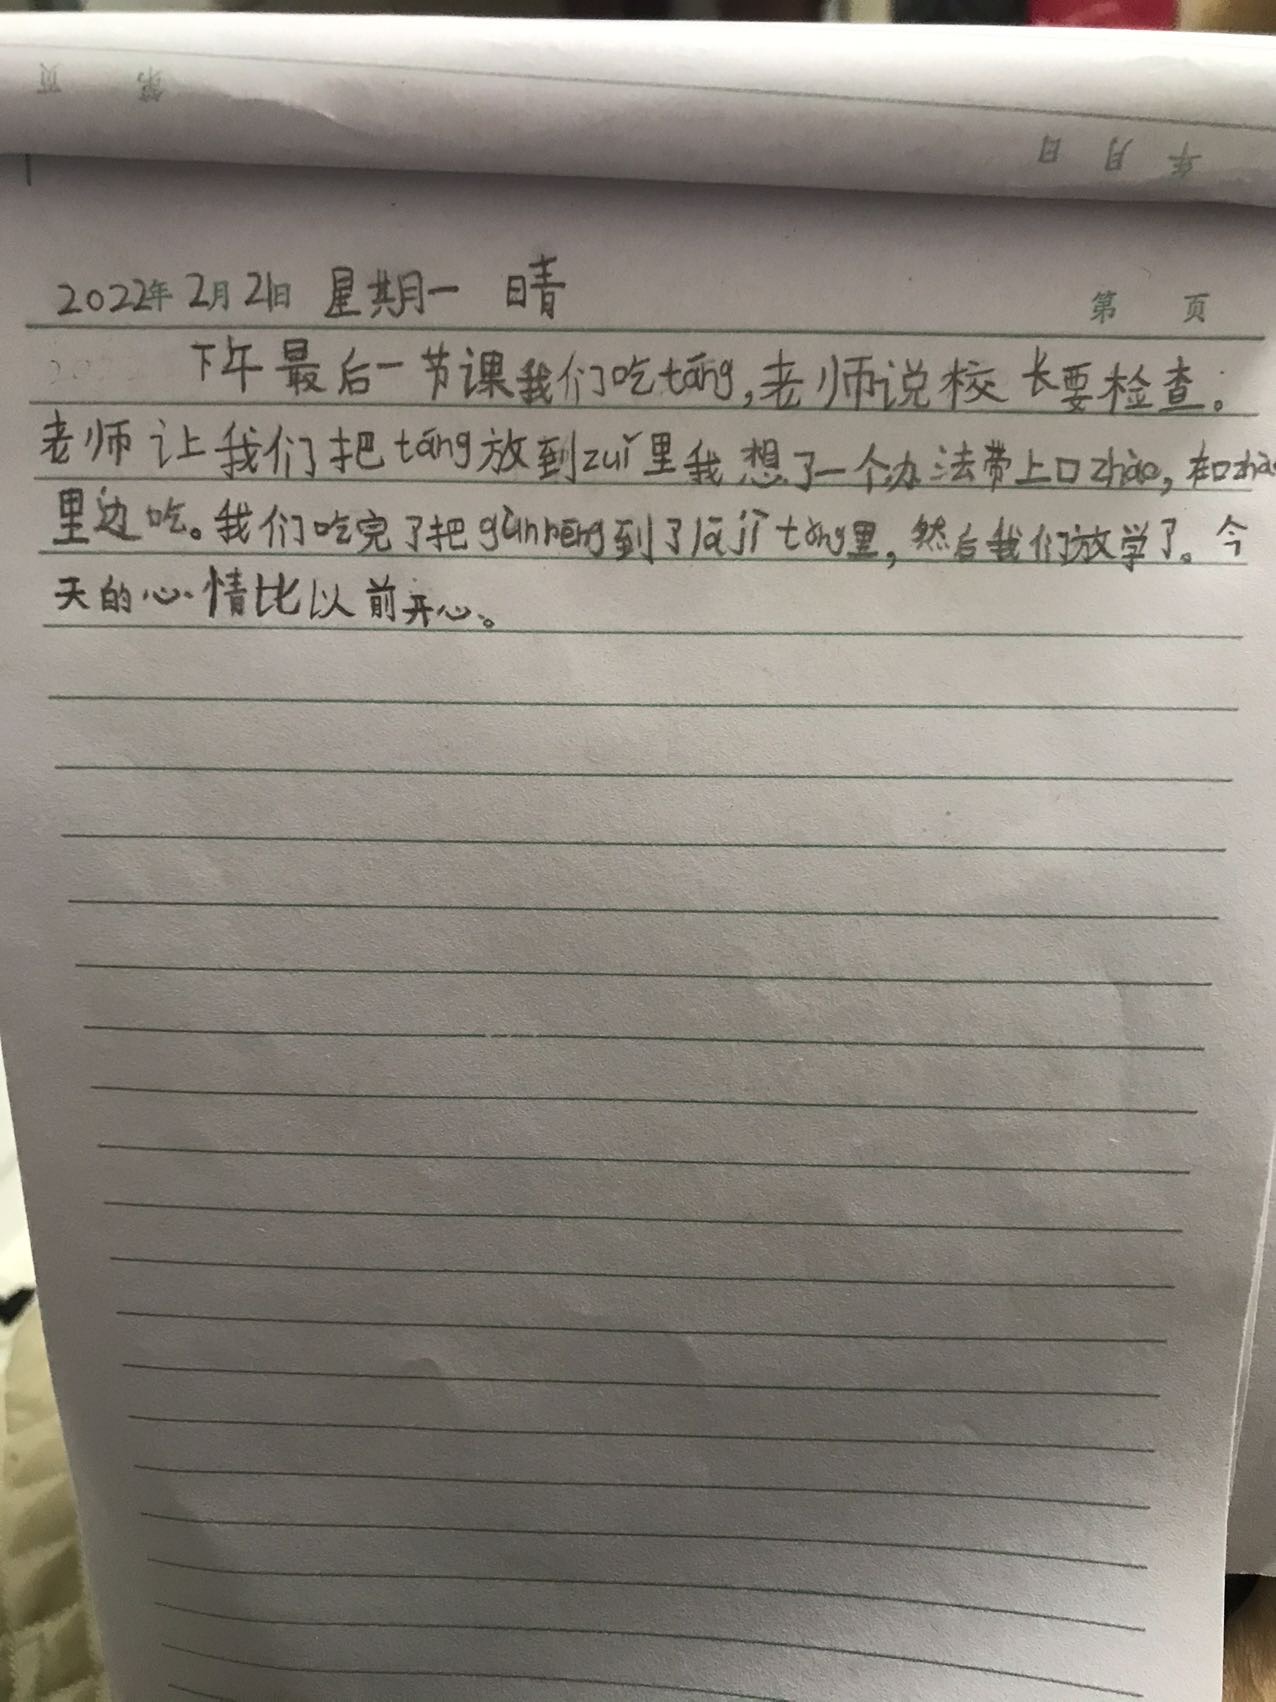 页 第
年 月 日
2022年 2月 21日 星期一 晴
第 页
下午最后一节课我们吃táng,老师说校长要检查。
老师让我们把táng放到zuǐ里我想了一个办法带上口zhào,在口zhào
里边吃。我们吃完了把gùn rēng到了lā jī tǒng里,然后我们放学了。今
天的心情比以前开心。